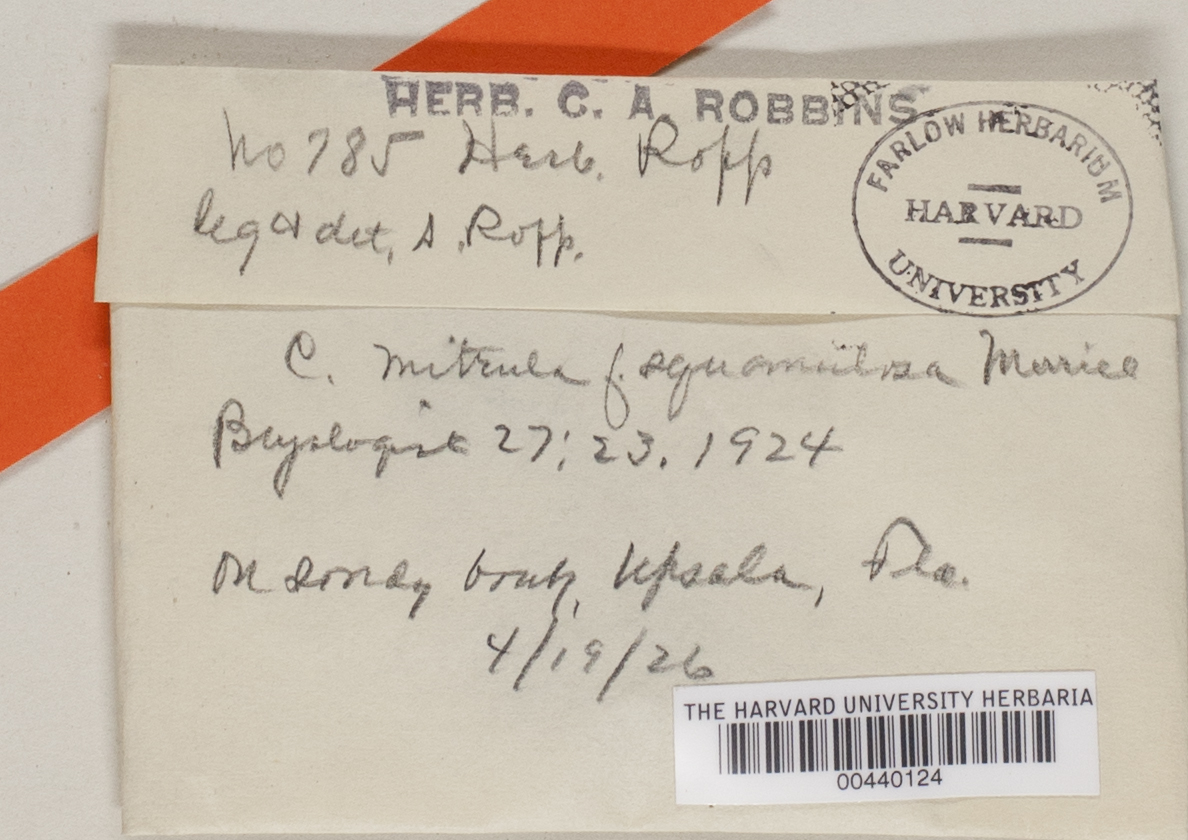 HERB. C. A. ROBBINS
No 785 Herb. Rapp
leg & det, S. Rapp.
FARLOW HERBARIUM
HARVARD
UNIVERSITY
C. mitrula f. squamulosa Merrill
Bryologist 27: 23. 1924
On sandy bank, Upsala, Fla.
4/19/26
THE HARVARD UNIVERSITY HERBARIA
00440124